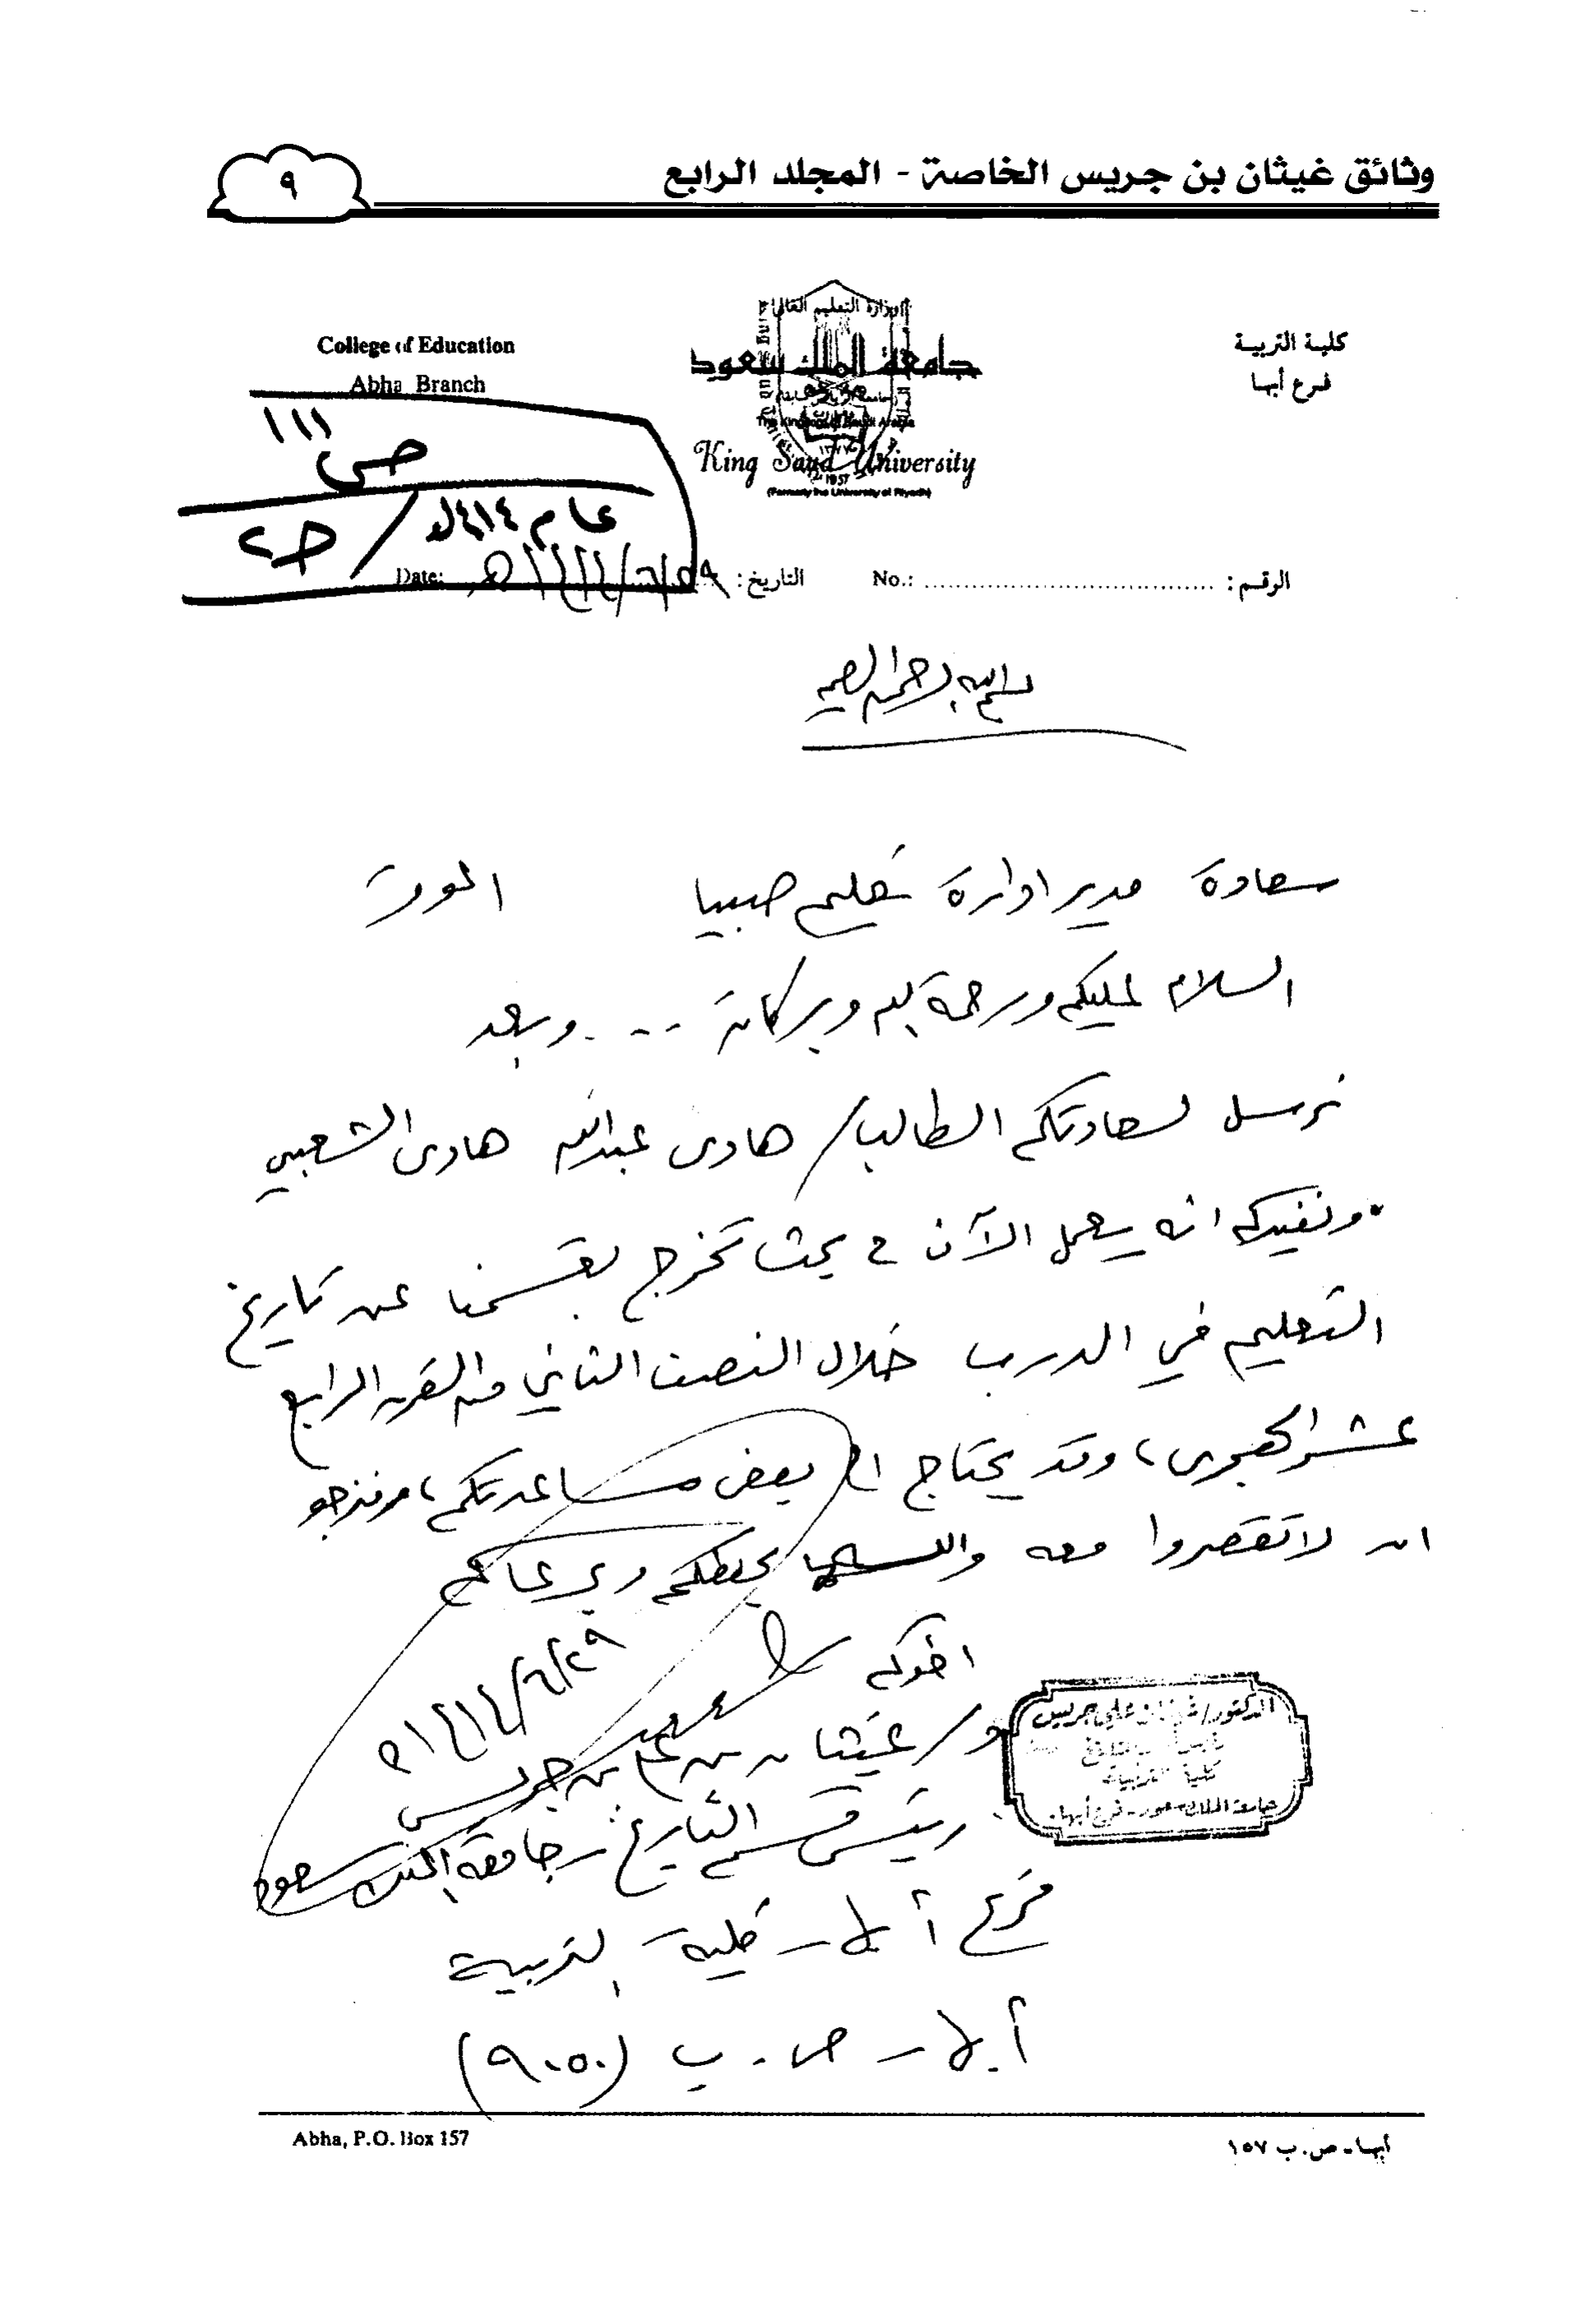 وثائق غيثان بن جريس الخاصة - المجلد الرابع
٩
كلية التربية
فرع أبها
وزارة التعليم العالي
جامعة الملك سعود
King Saud University
(Formerly the University of Riyadh)
1957
College of Education
Abha Branch
ص ١١١
عام ١٤١٤هـ / ح٢
الرقم: No.:
التاريخ: ٢٩/٦/١٤١٤هـ Date:
بسم الله الرحمن الرحيم
سعادة مدير ادارة تعليم صبيا الموقر
السلام عليكم ورحمة الله وبركاته --- وبعد
نرسل لسعادتكم الطالب/ هادى عبدالله هادى الشعبي
ونفيدكم انه يعمل الآن في بحث تخرج بقسمنا عن تاريخ
التعليم في الدرب خلال النصف الثاني من القرن الرابع
عشر الهجرى، وقد يحتاج الى بعض مساعدتكم، فنرجو
ان لا تقصروا معه والله يحفظكم ويرعاكم
اخوكم
٢٩/٦/١٤١٤هـ
د/ غيثان بن علي بن جريس
رئيس قسم التاريخ - جامعة الملك سعود
فرع أبها - كلية التربية
أبها - ص.ب (٩٠٥٠)
الدكتور/ غيثان علي جريس
كلية التربية
جامعة الملك سعود - فرع أبها
أبها - ص.ب ١٥٧
Abha, P.O. Box 157